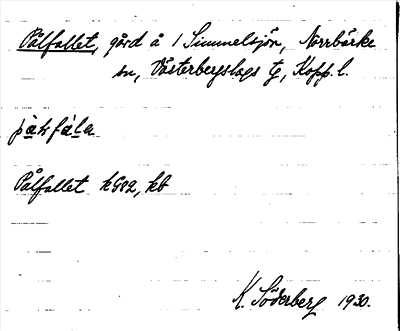 Pålfallet, gård å 1 Simmelsjön, Norrbärke
sn, Västerbergslags tg, Kopp. l.
påhfåla
Pålfallet hGe2, kb
K. Söderberg 1930.